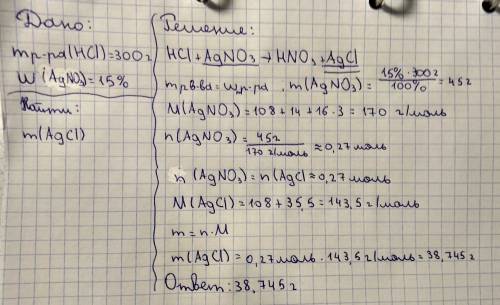 Дано:
mр-ра(HCl)=300г
W(AgNO₃)=15%
Найти:
m(AgCl)
Решение:
HCl+AgNO₃→HNO₃+AgCl
mрв-ва=wр-ра , m(AgNO₃)= 15%·300г/100% =45г
M(AgNO₃)=108+14+16·3=170 г/моль
n(AgNO₃)= 45г/170г/моль ≈0,27моль
n(AgNO₃)=n(AgCl≈0,27моль
M(AgCl)=108+35,5=143,5г/моль
m=n·M
m(AgCl)=0,27моль·143,5г/моль=38,745г
Ответ:38,745г